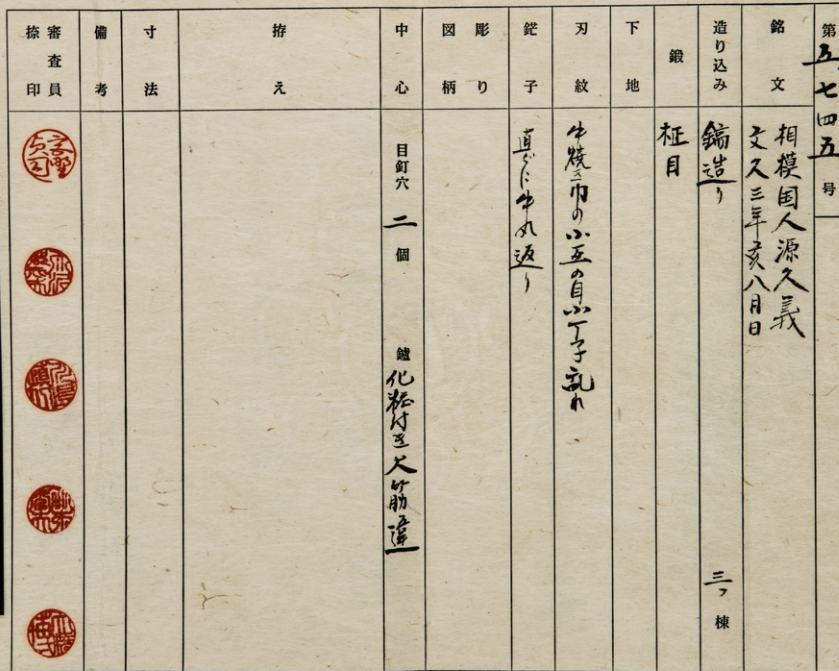 第五、七四五号
銘文
相模国人源久義
文久三年亥八月日
造り込み
鎬造り
三ツ棟
鍛
柾目
下地
刃紋
牛焼き巾の小互の目小丁子乱れ
鋩子
直ぐに牛丸返り
彫り
図柄
中心
目釘穴 二 個
鑢 化粧付き大筋違
拵え
寸法
備考
審査員
捺印